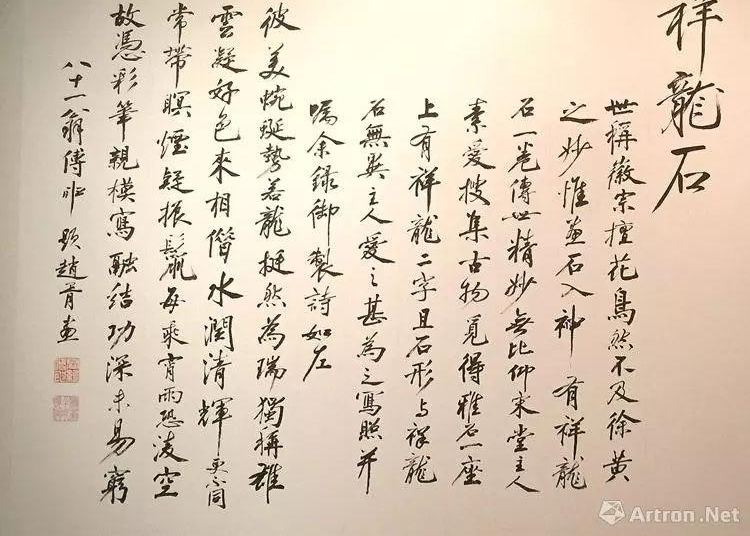 祥龍石
世稱徽宗擅花鳥然不及徐黃
之妙惟畫石入神有祥龍
石一卷傳世精妙無比仰來堂主人
素愛搜集古物覓得雅石一座
上有祥龍二字且石形与祥龍
石無異主人愛之甚為之寫照并
囑余錄御製詩如左
彼美蜿蜒勢若龍挺然為瑞獨稱雄
雲凝好色來相借水潤清輝更不同
常帶暝煙疑振鬣每乘宵雨恐凌空
故憑彩筆親模寫融結功深未易窮
八十一翁傅申題趙胥畫
Artron.Net